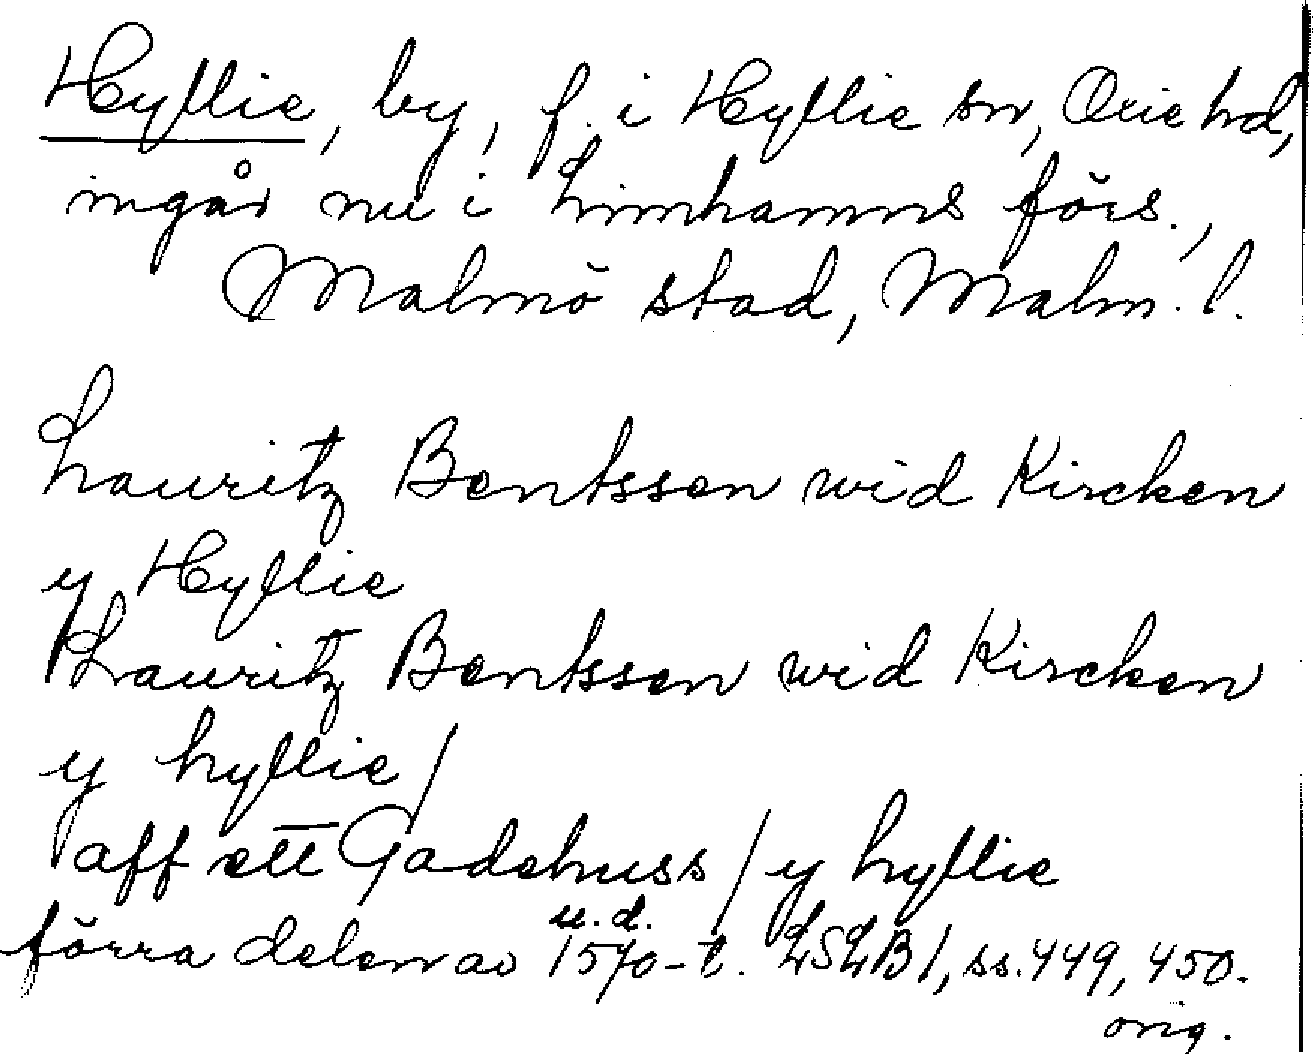 Hyllie, by, f. i Hyllie sn, Oxie hd,
ingår nu i Limhamns förs.,
Malmö stad, Malm. l.
Lauritz Bentssen wid Kircken
y Hyllie
Lauritz Bentssen wid Kircken
y hyllie/
aff ett Gadehuss / y hyllie
u.d.
förra delen av 1570-t. LSLB1, ss. 449, 450.
orig.